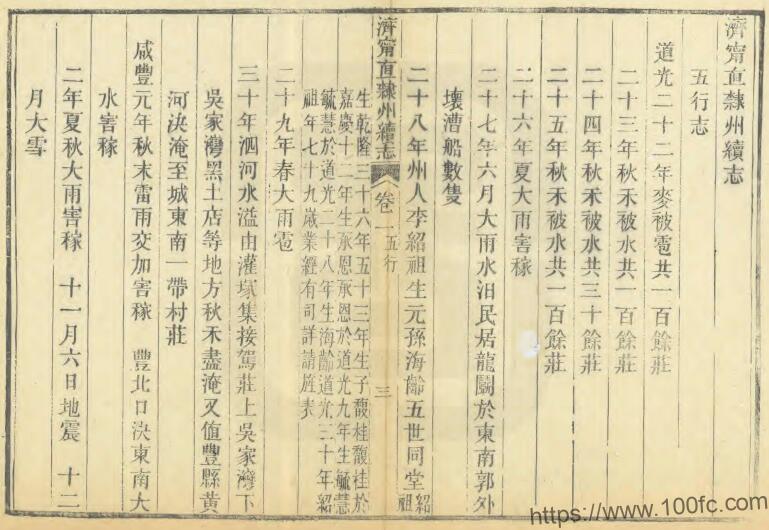 濟甯直隸州續志
五行志
道光二十二年麥被雹共一百餘莊
二十三年秋禾被水共一百餘莊
二十四年秋禾被水共三十餘莊
二十五年秋禾被水共一百餘莊
二十六年夏大雨害稼
二十七年六月大雨水汨民居龍鬭於東南郭外
壞漕船數隻
二十八年州人李紹祖生元孫海齡五世同堂紹祖
生乾隆三十六年五十三年生子馥桂馥桂於
嘉慶十二年生承恩承恩於道光九年生毓慧
毓慧於道光二十八年生海齡道光三十年紹
祖年七十九歲業經有司詳請旌表
濟甯直隸州續志 卷一 五行 三
二十九年春大雨雹
三十年泗河水溢由灌塚集接駕莊上吳家灣下
吳家灣黑土店等地方秋禾盡淹又值豐縣黃
河決淹至城東南一帶村莊
咸豐元年秋末雷雨交加害稼 豐北口決東南大
水害稼
二年夏秋大雨害稼 十一月六日地震 十二
月大雪
https://www.100fc.com